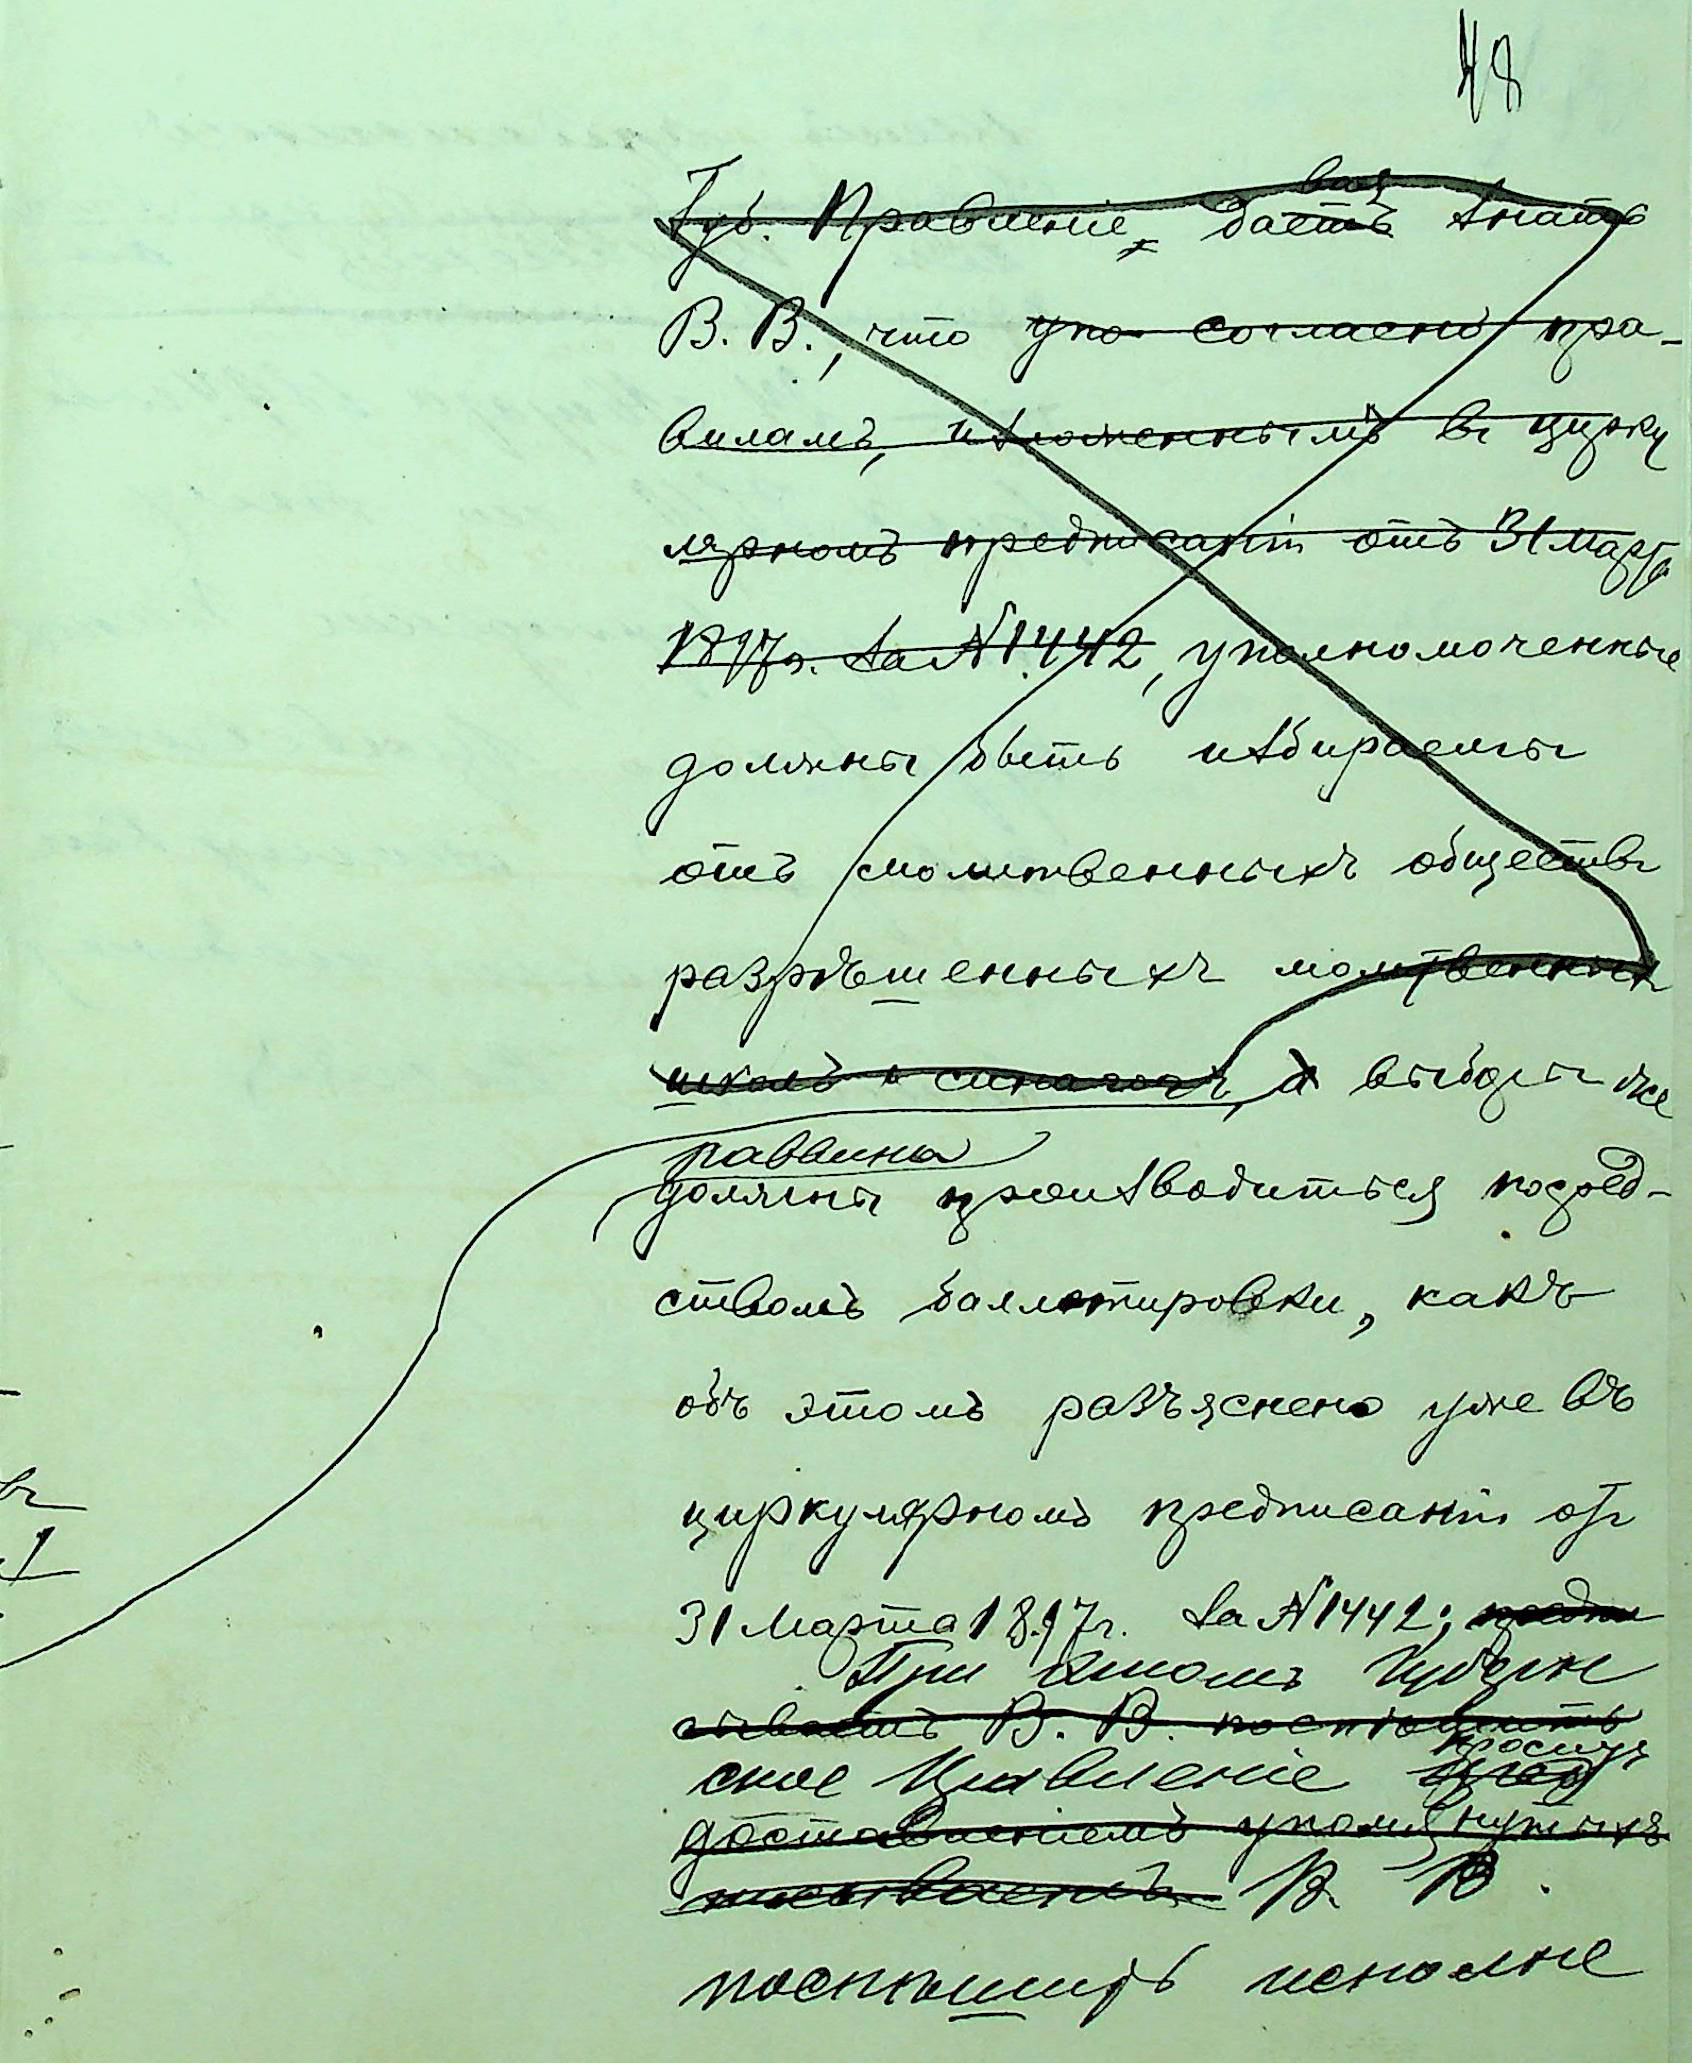 48
вая
Губ. Правленіе, даетъ знать
В. В., что упо согласно пра-
виламъ, изложеннымъ въ цирку
лярномъ предписаніи отъ 31 Марта
1897 г. за № 1442, уполномоченные
должны быть избираемы
отъ молитвенныхъ обществъ
разрѣшенныхъ молитвенныхъ
школъ и синагогъ, а выборы же
раввина
должны производиться посред-
ствомъ баллотировки, какъ
объ этомъ разъяснено уже въ
циркулярномъ предписаніи отъ
31 Марта 1897 г. за № 1442; предпи
При этомъ Губерн
сываетъ В. В. поспѣшить
проситъ
ское Правленіе пред
доставленіемъ упомянутыхъ
писываетъ В. В.
поспѣшить исполне